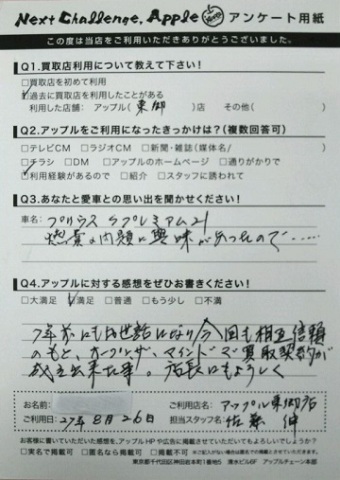 Next Challenge, Apple アンケート用紙
この度は当店をご利用いただきありがとうございました。
Q1.買取店利用について教えて下さい!
□買取店を初めて利用
☑過去に買取店を利用したことがある
利用した店舗: アップル(東郷)店 その他( )
Q2.アップルをご利用になったきっかけは?(複数回答可)
□テレビCM □ラジオCM □新聞・雑誌(媒体名/ )
□チラシ □DM □アップルのホームページ □通りがかりで
☑利用経験があるので □紹介 □スタッフに誘われて
Q3.あなたと愛車との思い出を聞かせください!
車名: プリウス Sプレミアム21
燃費の問題に興味があったので……
Q4.アップルに対する感想をぜひお書きください!
□大満足 ☑満足 □普通 □もう少し □不満
7年前にもお世話になり今回も相互信頼
のもと、オープンザ、マインドで買取契約が
成立出来た事。店長にもよろしく
お名前: ご利用店名: アップル東郷店
ご利用日: 27年8月26日 担当スタッフ名: 佐藤 伸
お客様に書いていただいた感想を、アップルHPや広告に掲載させていただいてもよろしいでしょうか?
□実名で掲載可 □匿名なら掲載可 □掲載不可
東京都千代田区神田錦町 アップルチェーン本部